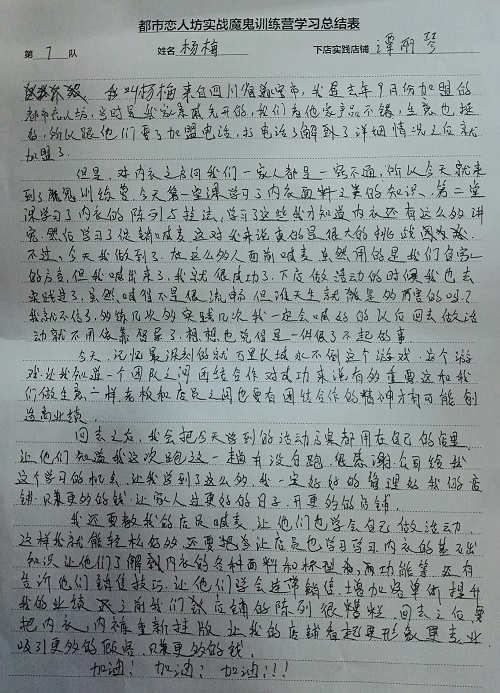 都市恋人坊实战魔鬼训练营学习总结表
第 7 队 姓名 杨梅 下店实践店铺 谭丽琴
我叫杨梅来自四川省遂宁市，我是去年9月份加盟的
都市恋人坊，当时是我家亲戚先开的，我们看他家产品不错，生意也挺
好，所以跟他们要了加盟电话，打电话了解到了详细情况之后就
加盟了。
但是，对内衣之方面我们一家人都是一窍不通，所以今天就来
到了魔鬼训练营，今天第一堂课学习了内衣面料之类的知识，第二堂
课学习了内衣的陈列与挂法，学习了这些我才知道内衣还有这么多的讲
究。然后学习了促销喊麦，这对我来说真的是很大的挑战
不过，今天我做到了，在这么多人面前喊麦，虽然用的是我们自家
的方言，但我喊出来了，我就很成功了，下店做活动的时候我也去
实践过了，虽然喊得不是很流畅，但谁天生就能是多厉害的吗？
我就不信了，多练几次多实践几次我一定会喊好的，以后回去做活
动就不用依靠督导了，想想也觉得是一件很了不起的事。
今天，记忆最深刻的就万里长城永不倒这个游戏，这个游
戏让我知道一个团队之间团结合作对成功来说有多重要，这和我
们做生意一样，老板和店员之间也要有团结合作的精神才有可能创
造高业绩。
回去之后，我会把今天学到的活动方案都用在自己的店里，
让他们知道我这次跑这一趟并没白跑。很感谢公司给我
这个学习的机会，让我学到了这么多，我一定好好的管理好我的店
铺，赚更多的钱，让家人过更好的日子，开更多的店铺。
我还要教我的店员喊麦，让他们也学会自己做活动，
这样我就能轻松好多，还要让店员也学习学习内衣的基本
知识，让他们了解到内衣的各种面料和杯型和功能等，还有
告诉他们销售技巧，让他们学会连带销售，增加客单价，提升
我的业绩，之前我们店铺的陈列很糟糕，回去之后要
把内衣、内裤重新挂版，让我的店铺看起更形象更专业，
吸引更多的顾客，赚更多的钱。
加油！加油！加油！！！